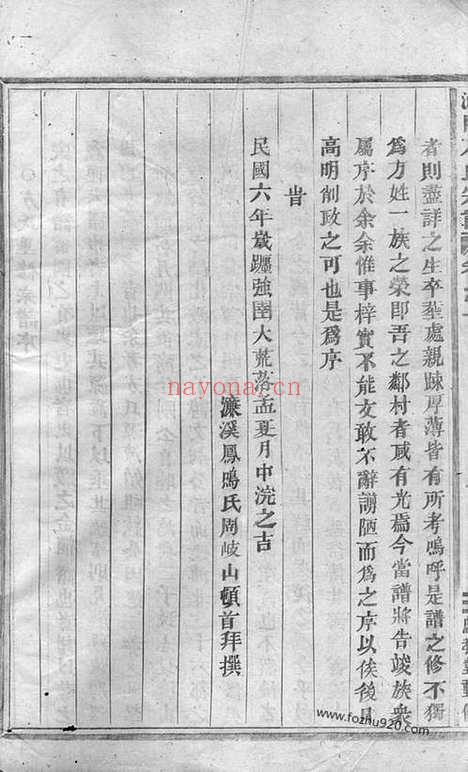 者則盡詳之生卒塟處親踈厚薄皆有所考嗚呼是譜之修不獨
爲方姓一族之榮卽吾之鄰村者咸有光焉今當譜將告竣族衆
屬序於余余惟事梓實不能文敢不辭謭陋而爲之序以俟後具
高明削政之可也是爲序
旹
民國六年嵗彊強圉大荒落孟夏月中浣之吉
濂溪鳳鳴氏周岐山頓首拜撰
nayona.cn
www.fozhu920.com